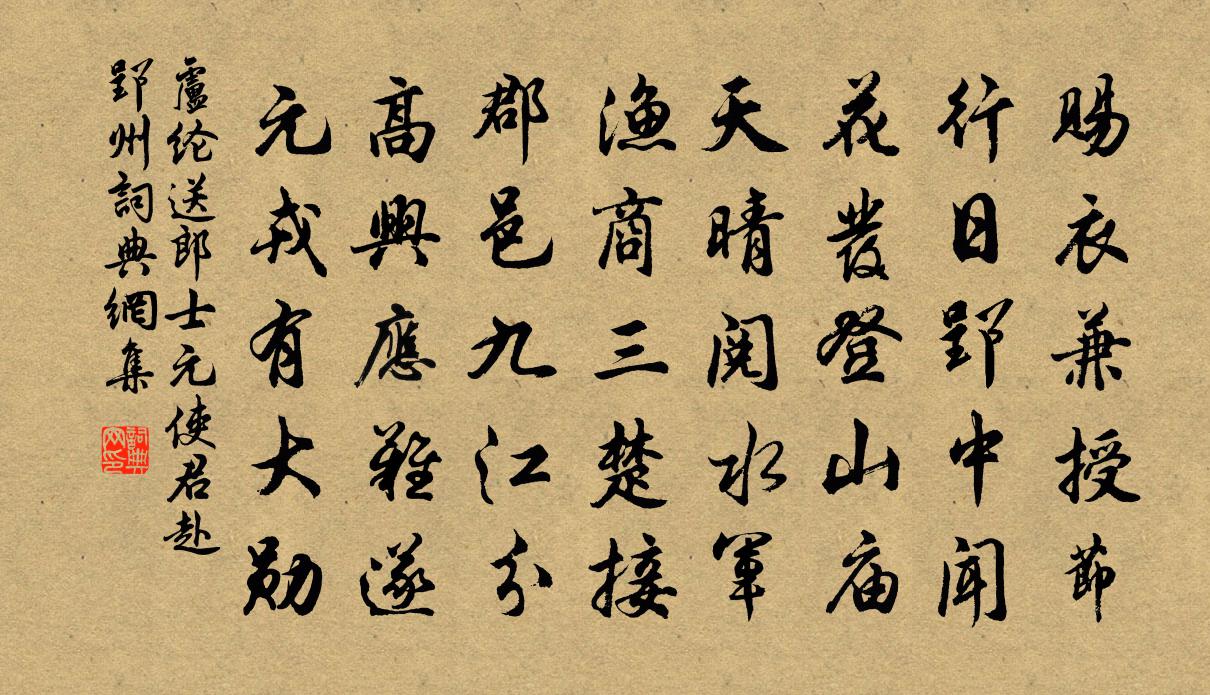 賜衣兼授節
行日郢中聞
花發登山廟
天晴閱水軍
漁商三楚接
郡邑九江分
高興應難遂
元戎有大勛
盧纶送郎士元使君赴
郢州詞典網集
詞典网印